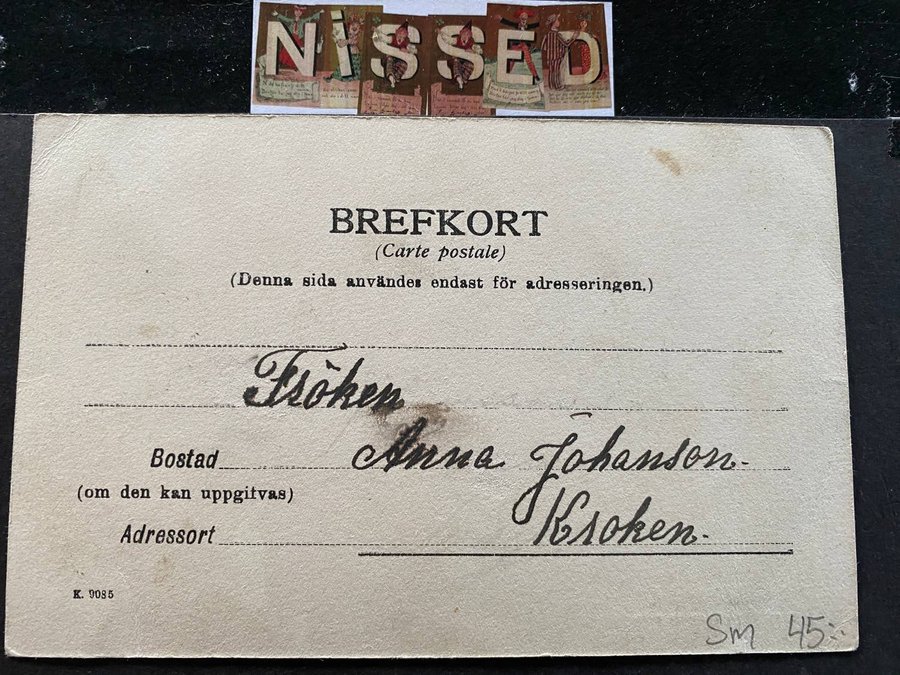 NiSSED
BREFKORT
(Carte postale)
(Denna sida användes endast för adresseringen.)
Fröken
Bostad Anna Johanson.
(om den kan uppgifvas)
Adressort Kroken.
K. 9085
Sm 45:-